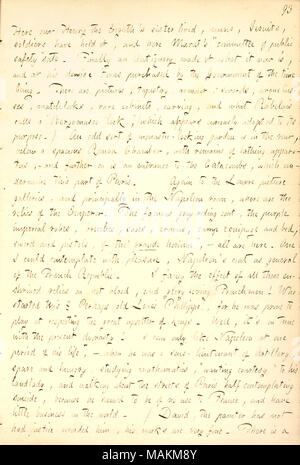 93
Here own Henry the Eighth's sister lived, nuns, Jesuits,
soldiers have held it, and here Marat's "committee of public
safety" sate. Finally an antiquary made of it what it now is,
and at his demise it was purchased by the government of the time
being. There are pictures, tapestry, armour, swords, arquebus-
ses, matchlocks, rare cabinets, carving, and what Rabelais
calls a " lock," which appears curiously adapted to its
purpose. / An odd sort of monastic-looking garden is in the rear,
below a spacious Roman chamber, with remains of baths, appara-
tus, and further on is an entrance to the Catacombs, which un-
dermine this part of Paris. Again to the Louvre picture
galleries, and principally in the Napoleon room, where are the
relics of the Emperor. The famous grey riding coat, the purple
imperial robes, crosses, camp equipage and bed,
sword and pistols, of the " " — all are here. Here
I could contemplate with pleasure, Napoleon's coat as general
of the French Republic. I fancy the effect of all these en-
shrined relics on hot blood, and glory loving Frenchmen! Who
started this? Perhaps old Louis Phillippe, for he was prone to
play at respecting the great upsetter of kings. Well, it's in tune
with the present dynasty! I can only like Napoleon at one
period of his life, — when he was a sous-lieutenant of artillery,
spare and hungry, studying mathematics, "wanting courtesy" to his
landlady, and walking about the streets of Paris half contemplating
suicide, because he feared to be of no use to France, and have
little business in the world. — / David, the painter has not
had justice him, his works are very fine. There is a
a
alamy
Image ID: MAKM8Y
www.alamy.com